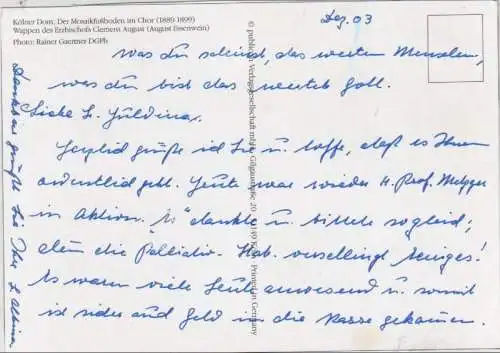 Kölner Dom: Der Mosaikfußboden im Chor (1889-1899)
Wappen des Erzbischofs Clemens August (August Essenwein)
Photo: Rainer Gaertner DGPh
Dez. 03
Was du scheinst, das werten Menschen,
was du bist das wertet Gott.
Liebe
Herzlich grüße ich Sie u. hoffe, daß es Ihnen
ordentlich geht. Heute war wieder H. Prof. Metzger
in Aktion. "Er" dankte u. bittete sogleich;
denn die Palliativ. Stat. verschlingt einiges!
Es waren viele Leute anwesend u. somit
ist sicher auch Geld in die Kasse gekommen.
Dankbar grüßt Sie Ihre
Printed in Germany